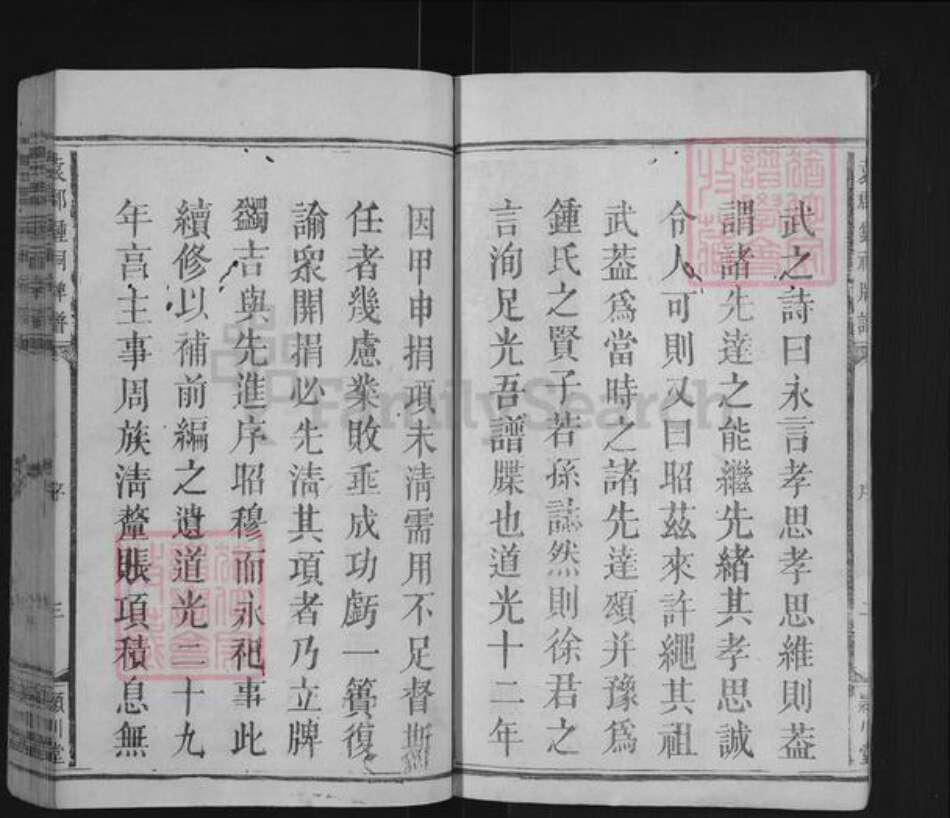 武之詩曰永言孝思孝思維則蓋
謂諸先達之能繼先緒其孝思誠
令人可則又曰昭茲來許繩其祖
武蓋爲當時之諸先達頌并豫爲
鍾氏之賢子若孫誌然則徐君之
言洵足光吾譜牒也道光十二年
因甲申捐項未清需用不足督斯
任者幾慮業敗垂成功虧一簣復
諭衆開捐必先清其項者乃立牌
蠲吉與先進序昭穆而永祀事此
續修以補前編之遺道光二十九
年高主事周族清釐賬項積息無
袁郡鍾祠牌譜
序
三
潁川堂
FamilySearch